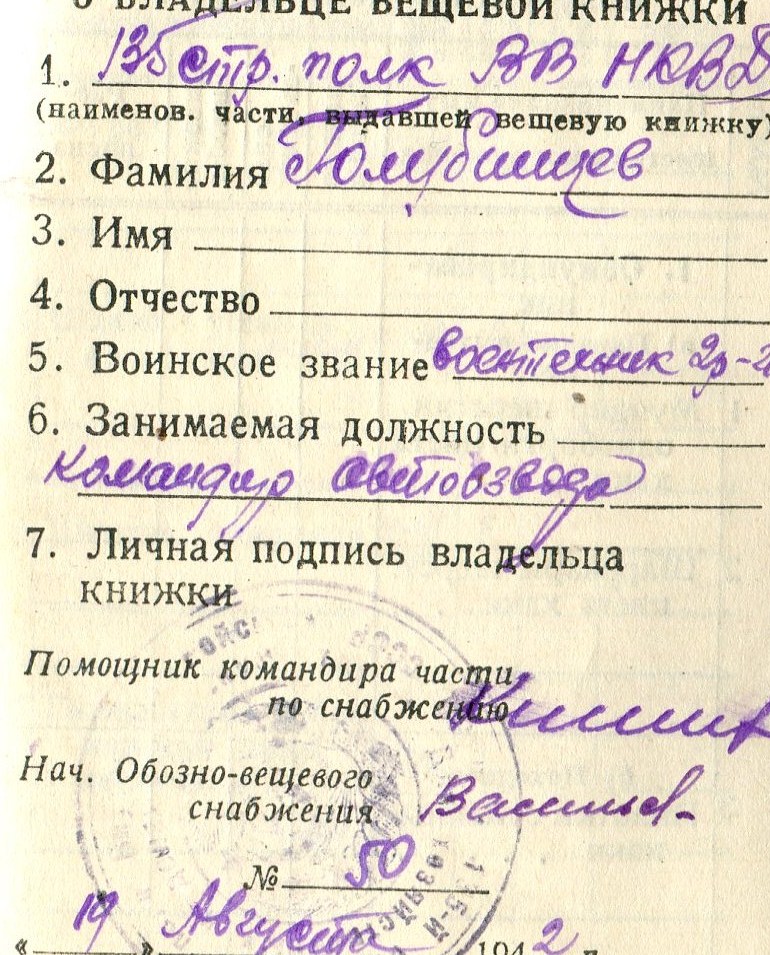 О ВЛАДЕЛЬЦЕ ВЕЩЕВОЙ КНИЖКИ
1. 135 стр. полк ВВ НКВД
(наименов. части, выдавшей вещевую книжку)
2. Фамилия Голубинцев
3. Имя
4. Отчество
5. Воинское звание воентехник 2р-
6. Занимаемая должность
командир автовзвода
7. Личная подпись владельца
книжки
Помощник командира части
по снабжению
Нач. Обозно-вещевого
снабжения Васильев
№ 50
« 19 » Августа 1942 г.